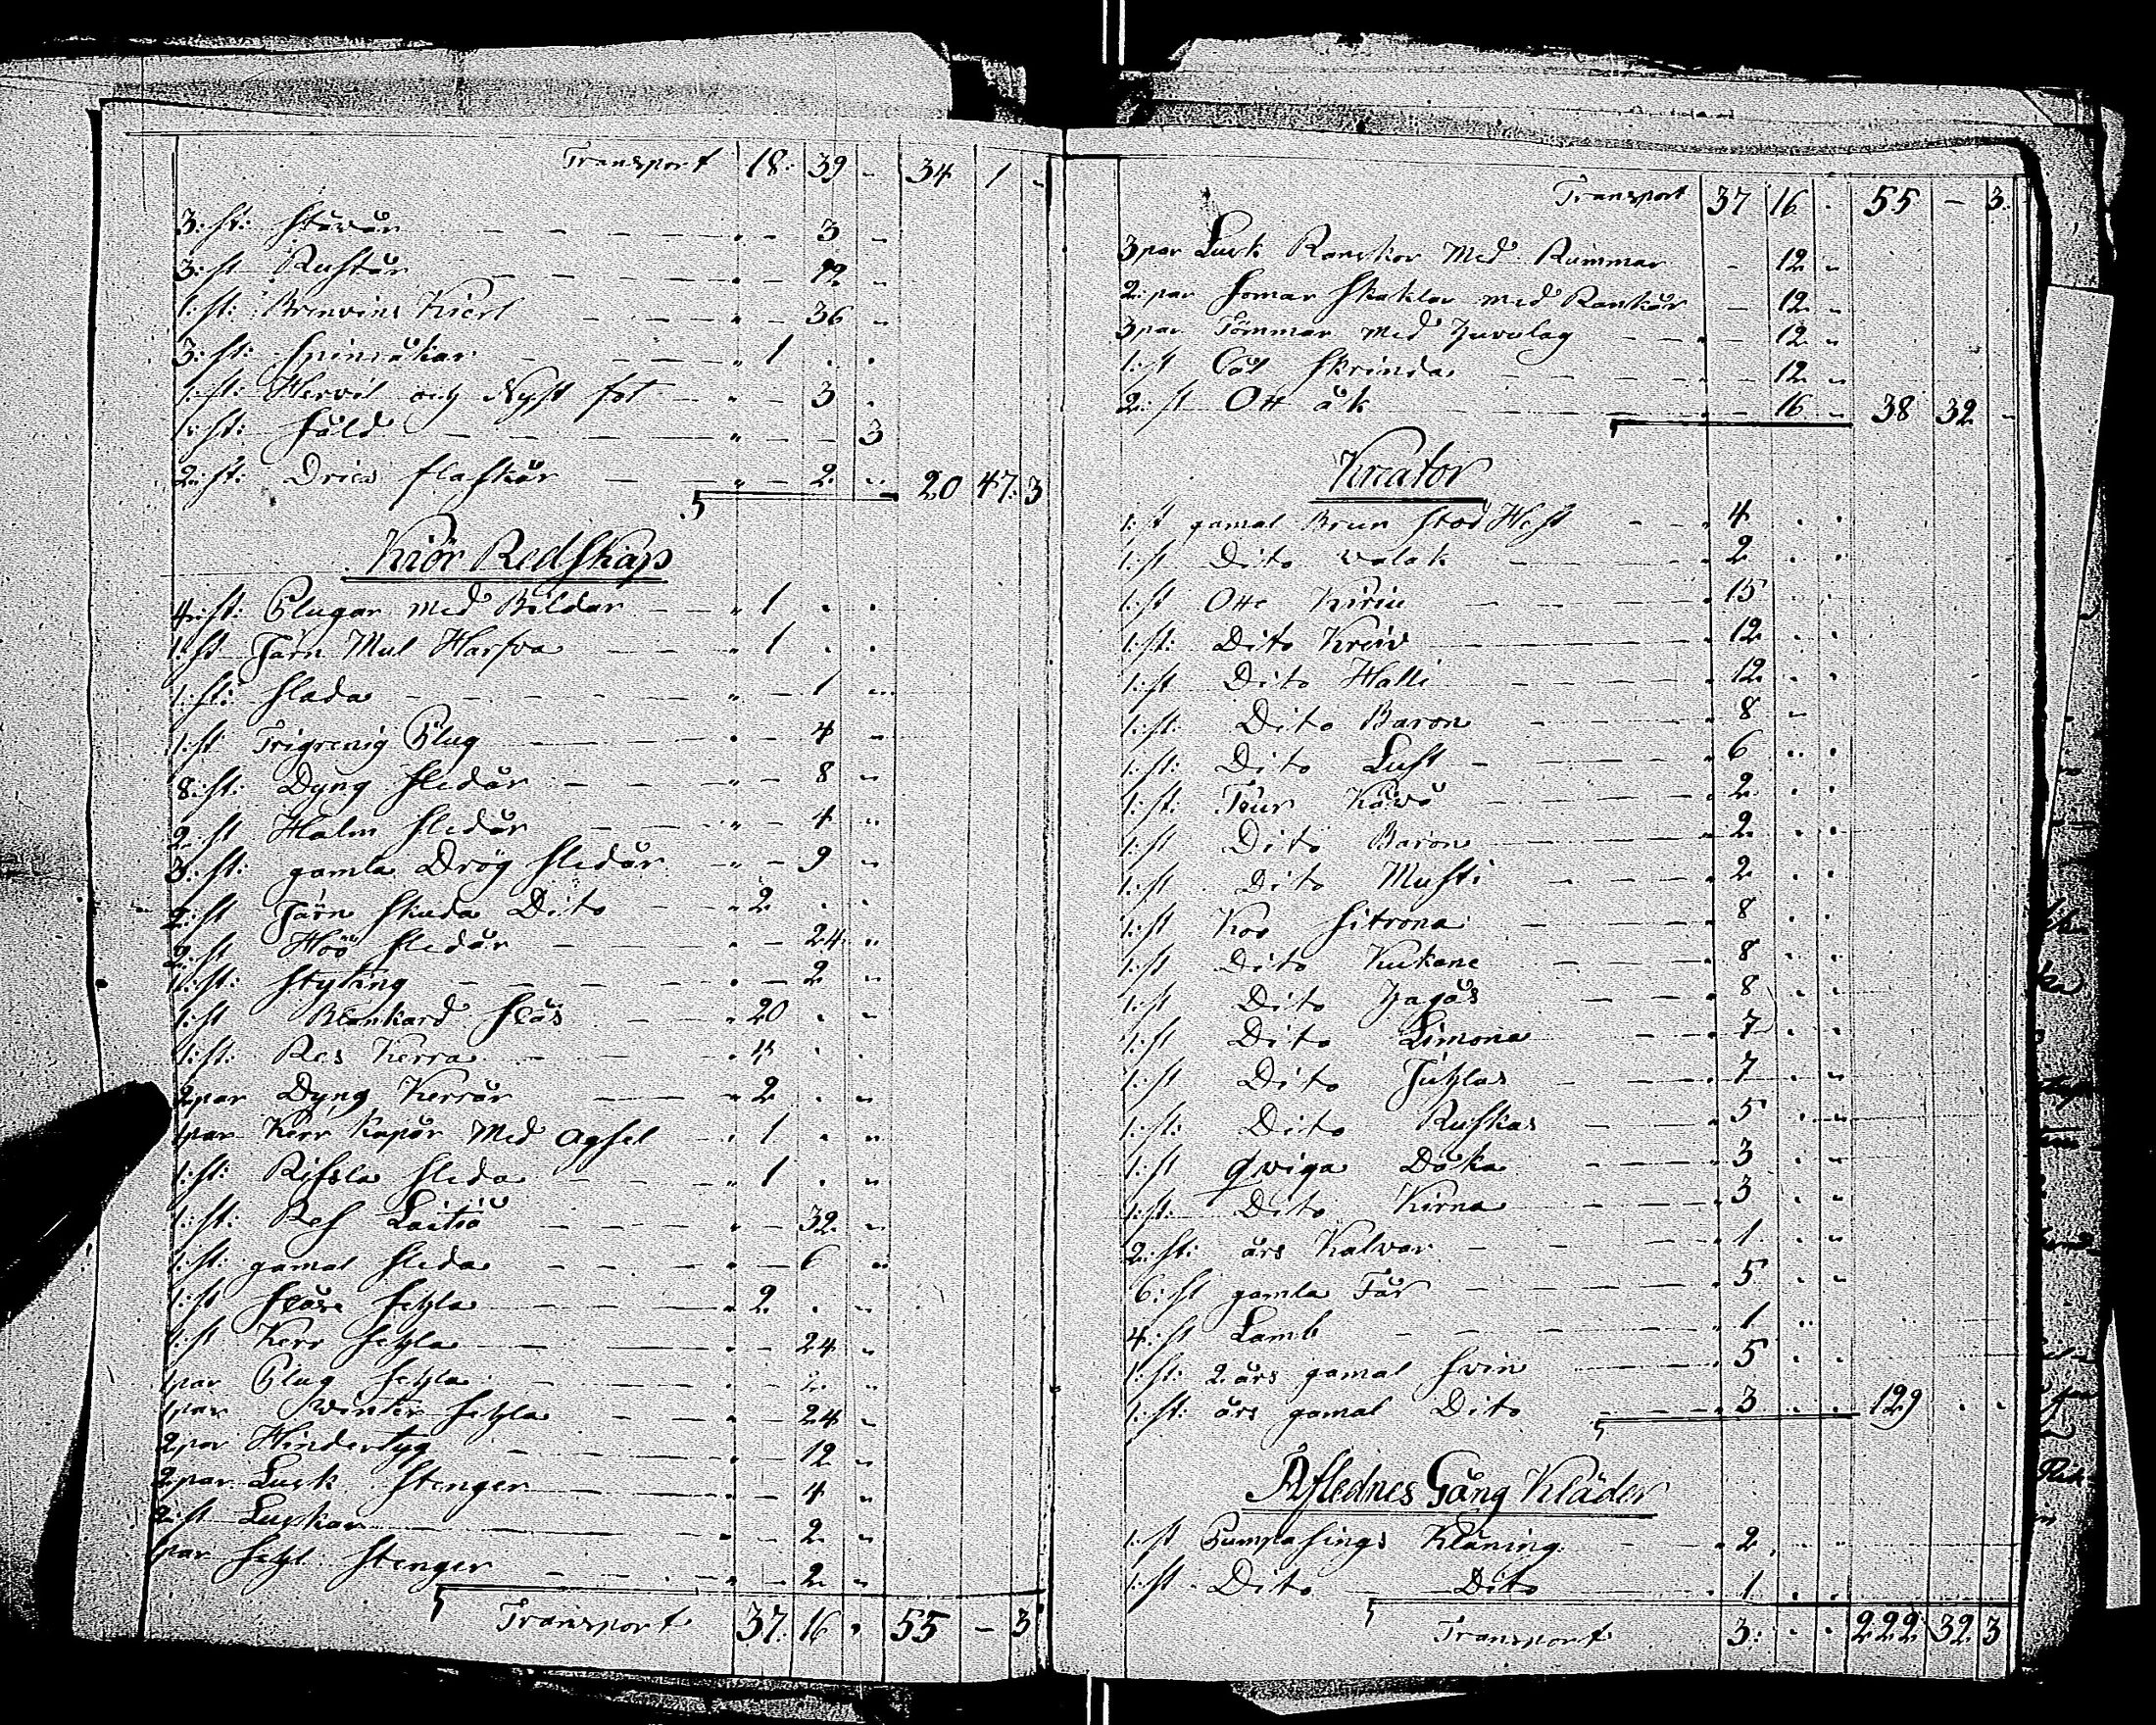 Transport 18: 39 - 34 1 -
3: st: stövor - 3 -
3: st Rustor - 12 -
1: st: Brenvins Kierl - 36 -
3: st: spinråkar 1 . .
1: st: Hervil och Nyst fot - 3 .
1: st: såld - - 3
2: st: Drics flaskor - 2 - 20 47: 3
Kiör Redskap
4: st: Plugar med Bildar 1 . .
1: st Järn Mul Harfva 1 . .
1: st: slada - 1 -
1: st Trigrenig Plug - 4 -
8: st: Dyng sledår - 8 -
2: st Halm sledår - 4 -
3: st: gamla Drög sledår - 9 -
2: st Järn skuda Dito 2 . .
2: st Höö sledår - 24 -
1: st: styting - 2 -
1: st Blankard släs 20 . -
1: st: Res Kerra 4 . .
2 par Dyng Kerrår 2 . -
1 par Kerr Kapor Med Axsel 1 . -
1: st: Rissla sleda 1 . -
1: st: Res Laitio - 32 -
1: st: gamal sleda - 6 -
1: st släse sehla 2 . -
1: st Kerr sehla - 24 -
1 par Plug sehla
1 par winter sehla - 24 -
2 par Hindertyg - 12 -
2 par Lusk stenger - 4 -
2: st Luskor - 2 -
1 par sehl stenger - 2 -
Transport 37. 16 . 55 - 3
Transport 37 16 . 55 - 3.
3 par Lusk Ranskor Med Rummar - 12 -
2: par somar skaklar med Rankår - 12 -
3 par Tömmar med huvulag - 12 -
1: st skrinda - 12 -
2: st Ok åk - 16 - 38 32 -
Kreator
1: st gamal Brun stod Hest 4 . .
1: st Dito valak 2 . .
1: st Oxe Kiriu 15 . .
1: st: Dito Kreiv 12 . .
1: st Dito Halli 12 . .
1: st: Dito Baron 8 -
1: st: Dito Lust 6 . .
1: st: Tiur Kävö 2 . .
1: st Dito Baron 2 . .
1: st Dito Musti 2 . .
1: st Koo sitrona 8 . .
1: st Dito Kukane 8 . .
1: st Dito Hagas 8 . .
1: st Dito Limona 7 . .
1: st Dito Juhlas 7 . -
1: st: Dito Ruskas 5 . -
1: st Qwiga Doka 3 . -
1: st: Dito Kirna 3 . -
2: st: års Kalvar 1 . -
6: st gamla Får 5 . -
4: st Lamb 1 . .
1: st: 2 års gamal svin 5 . .
1: st: års gamal Dito 3 . . 129 . .
Aflednes Gång Kläder
1: st Pumpasings Kläning 2 . .
1: st Dito Dito 1 . .
Transport 3: . . 222 32 3